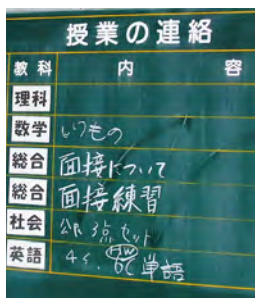 授業の連絡
教科 内容
理科
数学 いつもの
総合 面接について
総合 面接練習
社会 公民 3点セット
英語 単語